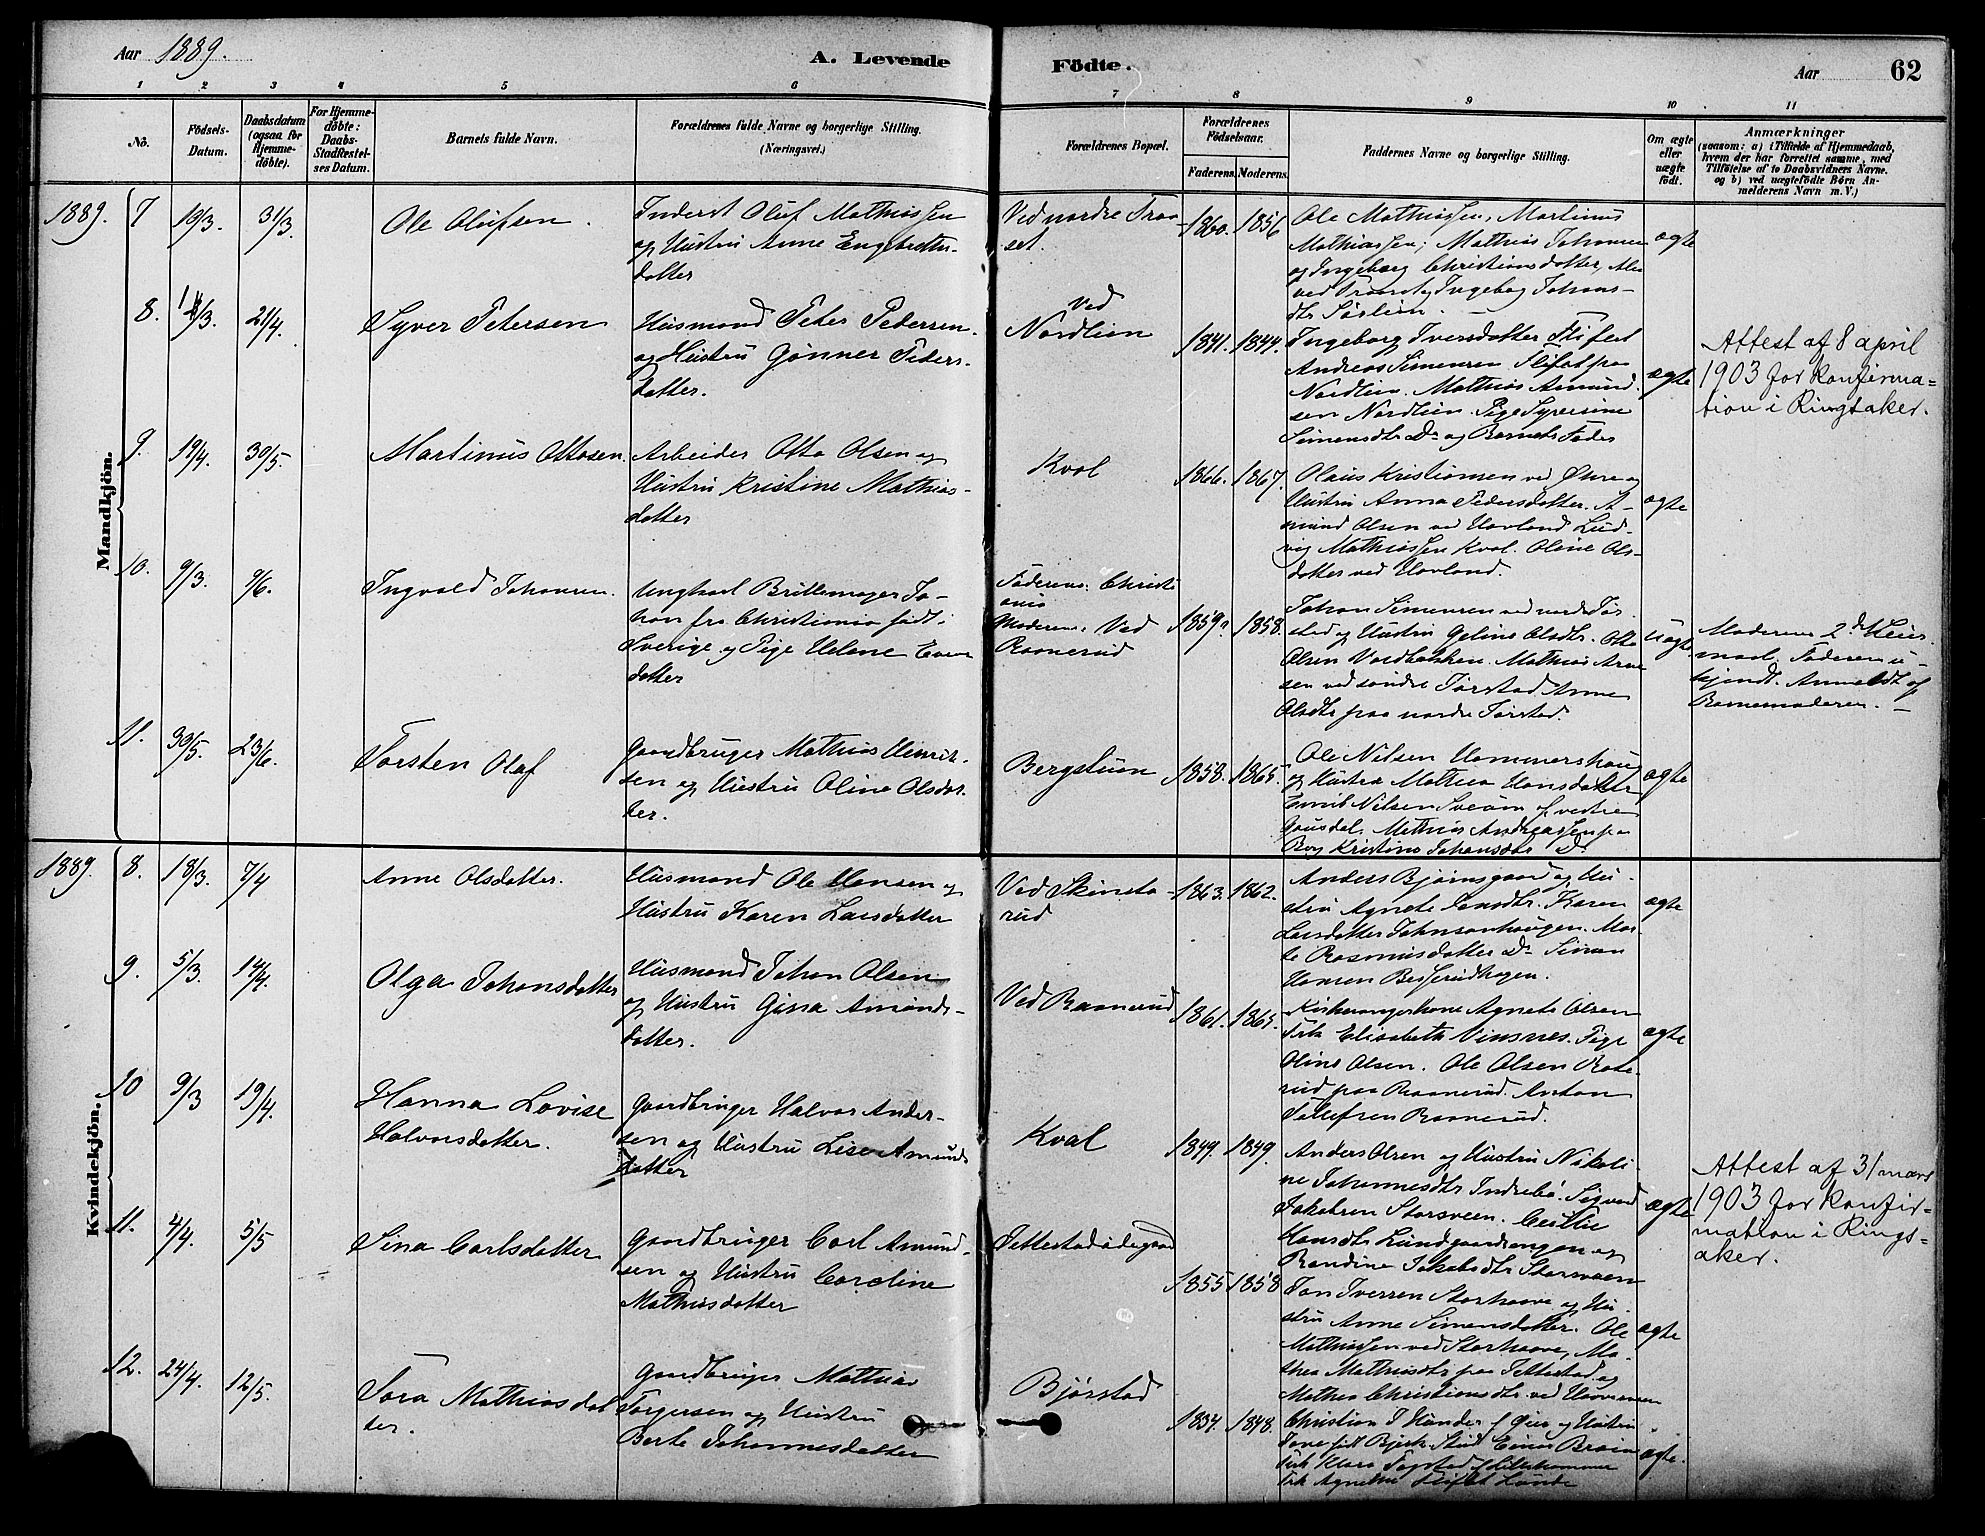 Aar 1889.
A. Levende
Födte.
Aar
62
1 2 3 4 5 6 7 8 9 10 11
No.
Födsels-
Datum.
Daabsdatum
(ogsaa for
Hjemme-
döbte).
For Hjemme-
döbte:
Daabs-
Stadfæstel-
ses Datum.
Barnets fulde Navn.
Forældrenes fulde Navne og borgerlige Stilling.
(Næringsvei.)
Forældrenes Bopæl.
Forældrenes
Födselsaar.
Faderens.
Moderens.
Faddernes Navne og borgerlige Stilling.
Om ægte
eller
uægte
födt.
Anmærkninger
(saasom: a) i Tilfælde af Hjemmedaab,
hvem der har forrettet samme, med
Tilföielse af to Daabsvidners Navne.
og b) ved uægtefödte Börn An-
melderens Navn m. V.)
Mandkjön.
1889.
7 19/3. 31/3.
Ole Olufsen.
Inderst Oluf Mathiassen
og Hustru Anne Engebretts-
datter
Ved nordre Traa-
set.
1860. 1856
Ole Mathiassen, Martinus
Mathiassen, Mathias Johansen
og Ingeborg Christiansdatter, Alle
ved Traaset og Ingeborg Johans-
dtr Sørlien.
ægte
8. 21/4.
Syver Petersen
Husmand Peter Pedersen
og Hustru Gønner Peders-
datter.
Ved
Nordlien
1841. 1844.
Ingeborg Iversdatter
Andreas Simensen
Nordlien. Mathias Amund-
sen Nordlien. Pige Syversine
Simensdtr Do og Barnets Fader
ægte
Attest af 8 april
1903 for konfirma=
tion i Ringsaker.
9. 19/4. 30/5.
Martinus Ottosen.
Arbeider Otto Olsen og
Hustru Kristine Mathias-
datter
Kval
1866. 1867.
Olaus Kristiansen ved og
Hustru Anna Pedersdatter. A-
mund Olsen ved Hovland Lud-
vig Mathiassen Kval. Oline Ols-
datter ved Hovland.
ægte
10. 9/3. 9/6.
Ingvald Johansen
Ungkarl Brillemager Jo-
han fra Christiania født i
Sverige og Pige Helene Evens-
datter
Faderens: Christi-
ania
Moderens: Ved
Raanerud
1859. 1858.
Johan Simensen ved nordre Tør-
stad og Hustru Geline Olsdtr. Otto
Olsen Nordbakken. Mathias Arne-
sen ved søndre Tørstad Anne
Olsdtr paa nordre Tørstad.
uægte
Moderens 2d Leier-
maal, Faderen u-
kjendt. Anmeldt af
Barnemoderen.
11. 30/5. 23/6.
Torsten Olaf
Gaardbruger Mathias Henrik-
sen og Hustru Oline Olsdat-
ter.
Bergstuen
1858. 1865.
Ole Nilsen Hammershaug
og Hustru Mathea Hansdatter
Emil Nilsen Sveum af vestre
Gausdal. Mathias Andreassen paa
Berg Kristine Johansdtr Do
ægte
Kvindekjön.
1889.
8. 18/3. 7/4
Anne Olsdatter.
Husmand Ole Hansen og
Hustru Karen Larsdatter
Ved Skinsta-
rud
1863. 1862.
Anders Bjørnsgaard og Hu-
stru Agnete Larsdtr. Karen
Larsdatter Johnsenhaugen. Mar-
te Rasmusdatter Do Simen
Hansen Besserudhagen.
ægte
9. 5/3. 14/4.
Olga Johansdatter
Husmand Johan Olsen
og Hustru Gina Amunds-
datter.
Ved Raanerud
1861. 1865.
Kirkesangerkone Agnete Olsen
Frk Elisabeth Vinsnes. Pige
Oline Olsen. Ole Olsen
paa Raanerud. Anton
Tollefsen Raanerud.
ægte
10 9/3 19/4.
Hanna Lovise
Halvorsdatter.
Gaardbruger Halvor Ander-
sen og Hustru Lise Amunds-
datter
Kval
1849. 1849.
Anders Olsen og Hustru Nikoli-
ne Johannesdtr Indrebø. Sigvard
Jakobsen Storsveen. Cecilie
Hansdtr Lundgaardsengen og
Randine Jakobsdtr Storsveen
ægte
Attest af 31 mars
1903 for konfir=
mation i Rings=
aker.
11. 4/4. 5/5
Sina Carlsdatter
Gaardbruger Carl Amund-
sen og Hustru Caroline
Mathiasdatter
Settestadødegaard
1855 1858
Jon Iversen Storhaave og Hu-
stru Anne Simensdatter. Ole
Mathiassen ved Storhaave, Ma-
thea Mathiasdtr paa Settestad og
Mathea Christiansdtr ved
ægte
12. 24/4. 12/5.
Tora Mathiasdat-
ter.
Gaardbruger Mathias
Torgersen og Hustru
Berte Johannesdatter
Bjørstad
1834. 1848.
Christian og Hustru
født Stud Einar
Frk Klara Fogstad af Lillehammer
Frk
ægte.